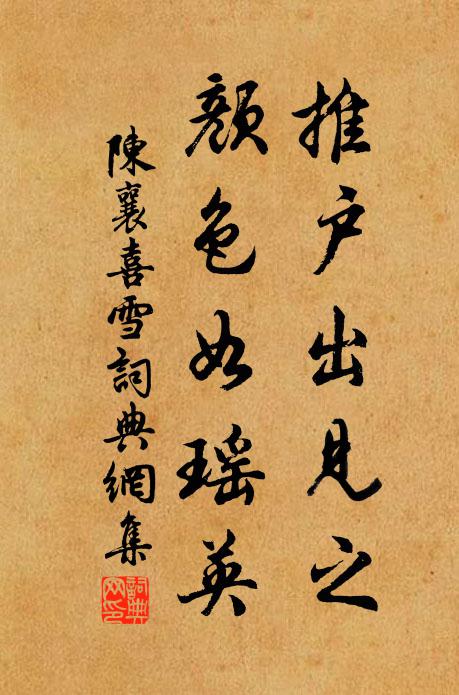 推户出見之
顔色如瑶英
陳襄喜雪詞典網集
詞典网印